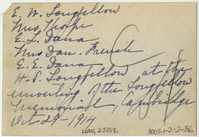 E. W. Longfellow
Mrs Thorpe
E. L. Dana
Mrs Dan. French
E. E. Dana
H. S. Longfellow at the
unveiling of the Longfellow
Memorial, Cambridge
Oct 29 - 1914
3007-1-2-2-36